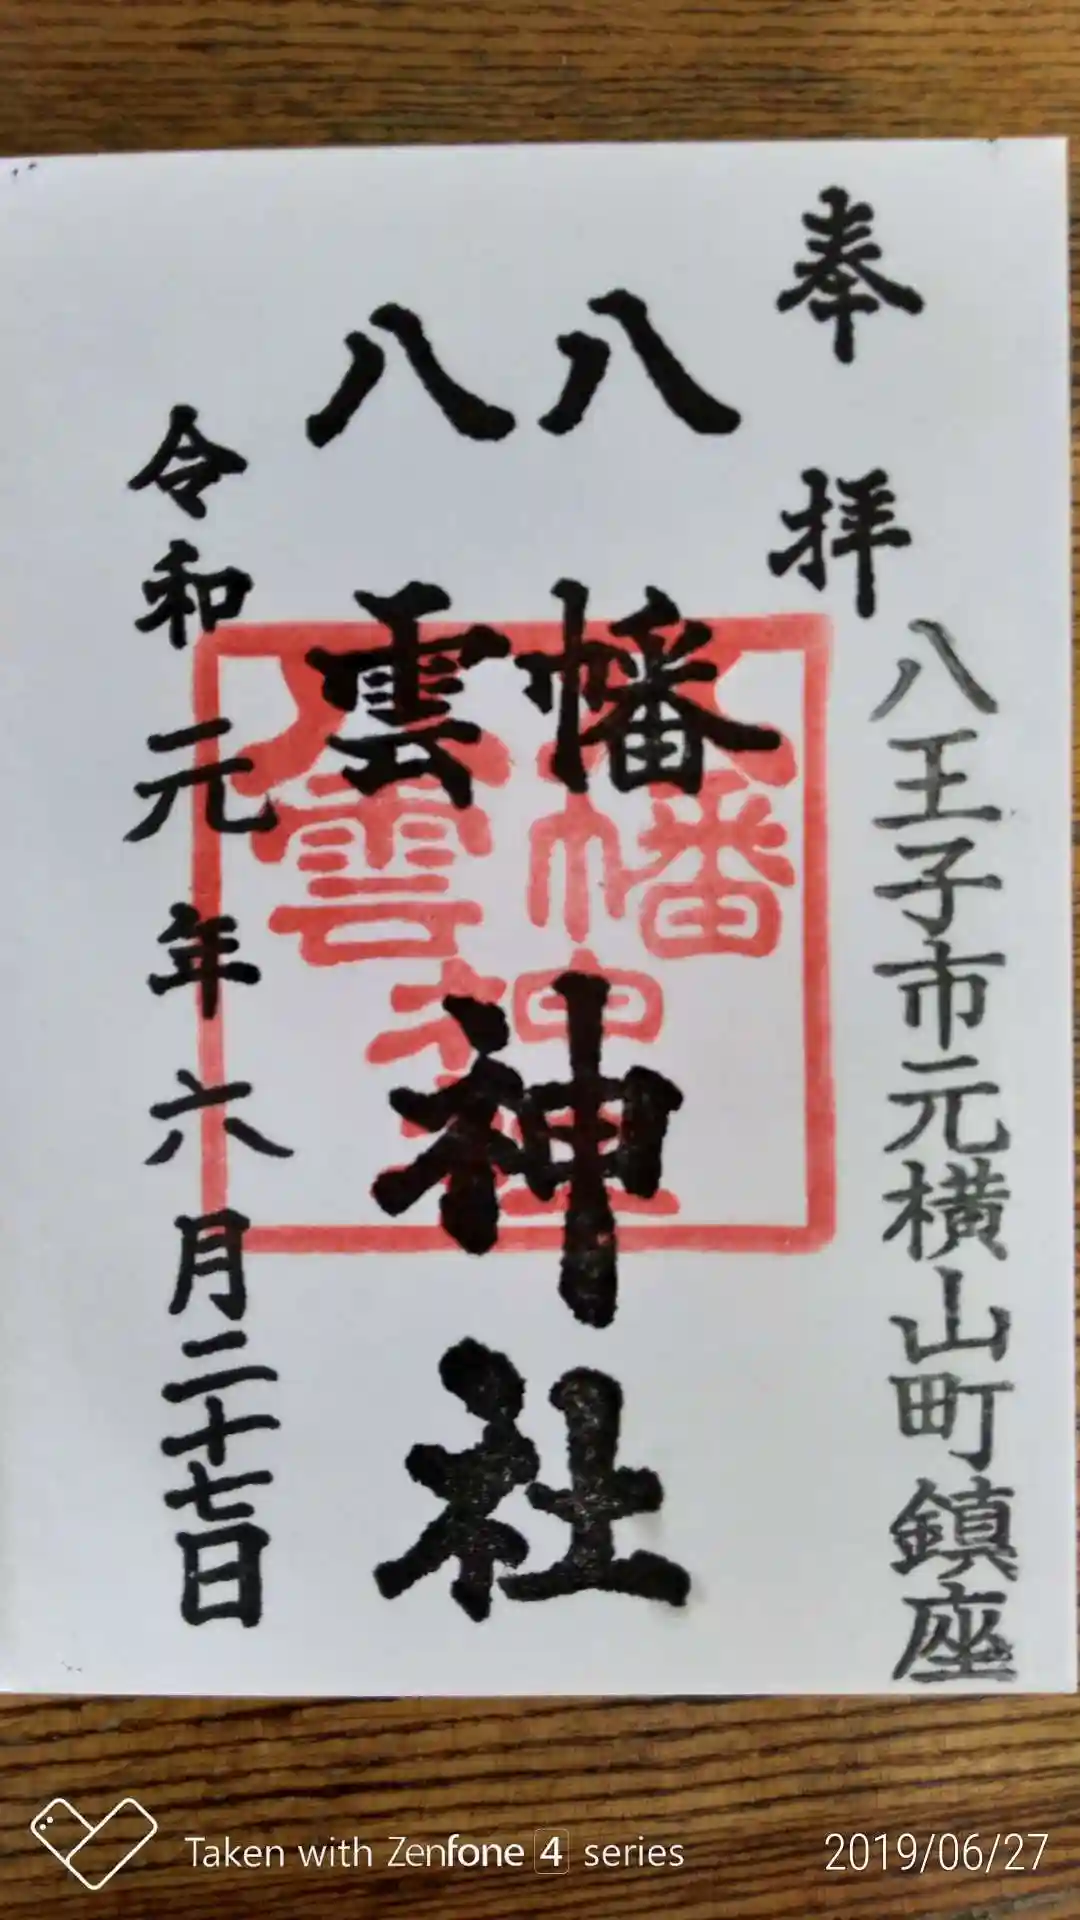 奉拝
八王子市元横山町鎮座
八幡
八雲
神社
八幡
八雲
神社
令和元年六月二十七日
Taken with Zenfone 4 series
2019/06/27